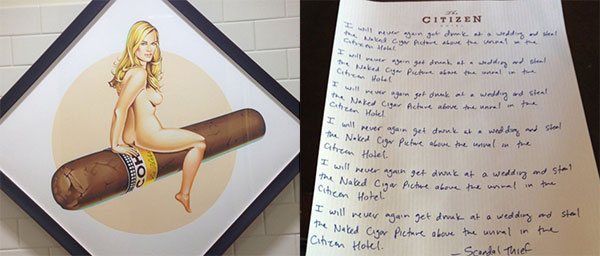 The
CITIZEN
HOTEL
I will never again get drunk at a wedding and steal
the Naked Cigar Picture above the urinal in the
Citizen Hotel.
I will never again get drunk at a wedding and steal
the Naked Cigar Picture above the urinal in the
Citizen Hotel.
I will never again get drunk at a wedding and steal
the Naked Cigar Picture above the urinal in the
Citizen Hotel.
I will never again get drunk at a wedding and steal
the Naked Cigar Picture above the urinal in the
Citizen Hotel.
I will never again get drunk at a wedding and steal
the Naked Cigar Picture above the urinal in the
Citizen Hotel.
I will never again get drunk at a wedding and steal
the Naked Cigar Picture above the urinal in the
Citizen Hotel.
- Scandal Thief